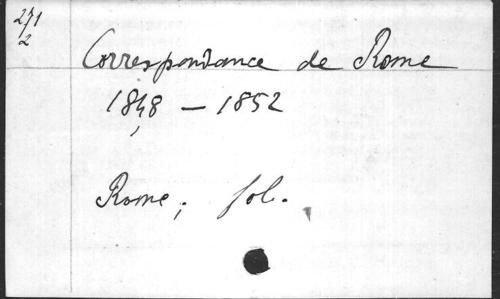 271
2
Correspondance de Rome
1848 — 1852
Rome, fol.